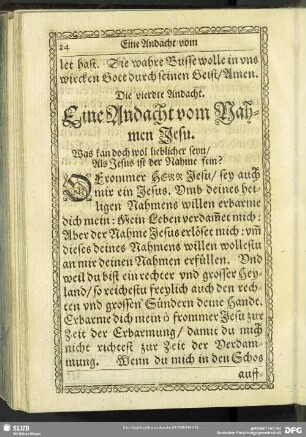 24
Eine Andacht vom
let hast. Die wahre Busse wolle in vns
wircken Gott durch seinen Geist/Amen.
Die vierdte Andacht.
Eine Andacht vom Nah-
men Jesu.
Was kan doch wol lieblicher seyn/
Als Jesus ist der Nahme sein?
O Frommer HERR Jesu/ sey auch
mir ein Jesus. Vmb deines hei-
ligen Nahmens willen erbarme
dich mein: Mein Leben verdam̃et mich:
Aber der Nahme Jesus erlöset mich: vm̃
dieses deines Nahmens willen wollestu
an mir deinen Nahmen erfüllen. Vnd
weil du bist ein rechter vnd grosser Hey-
land/ so reichestu freylich auch den rech-
ten vnd grossen Sündern deine Handt.
Erbarme dich mein ô frommer Jesu zur
Zeit der Erbarmung/ damit du mich
nicht richtest zur Zeit der Verdam-
mung. Wenn du mich in den Schos
auff-
SLUB
DFG